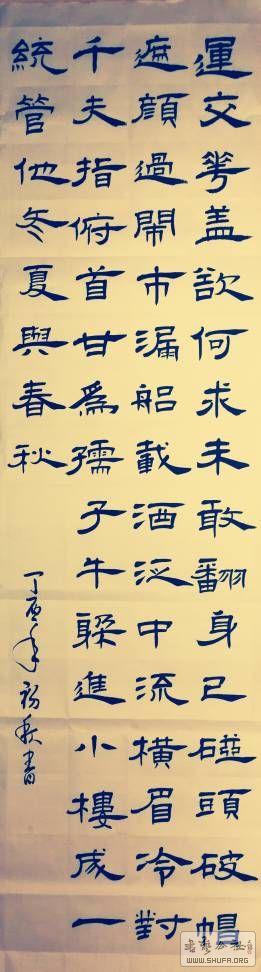 運交華盖欲何求未敢翻身已碰頭破帽
遮顏過鬧市漏船載酒泛中流橫眉冷對
千夫指俯首甘爲孺子牛躲進小樓成一
統管他冬夏與春秋
丁酉年初秋書
WWW.SHUFA.ORG